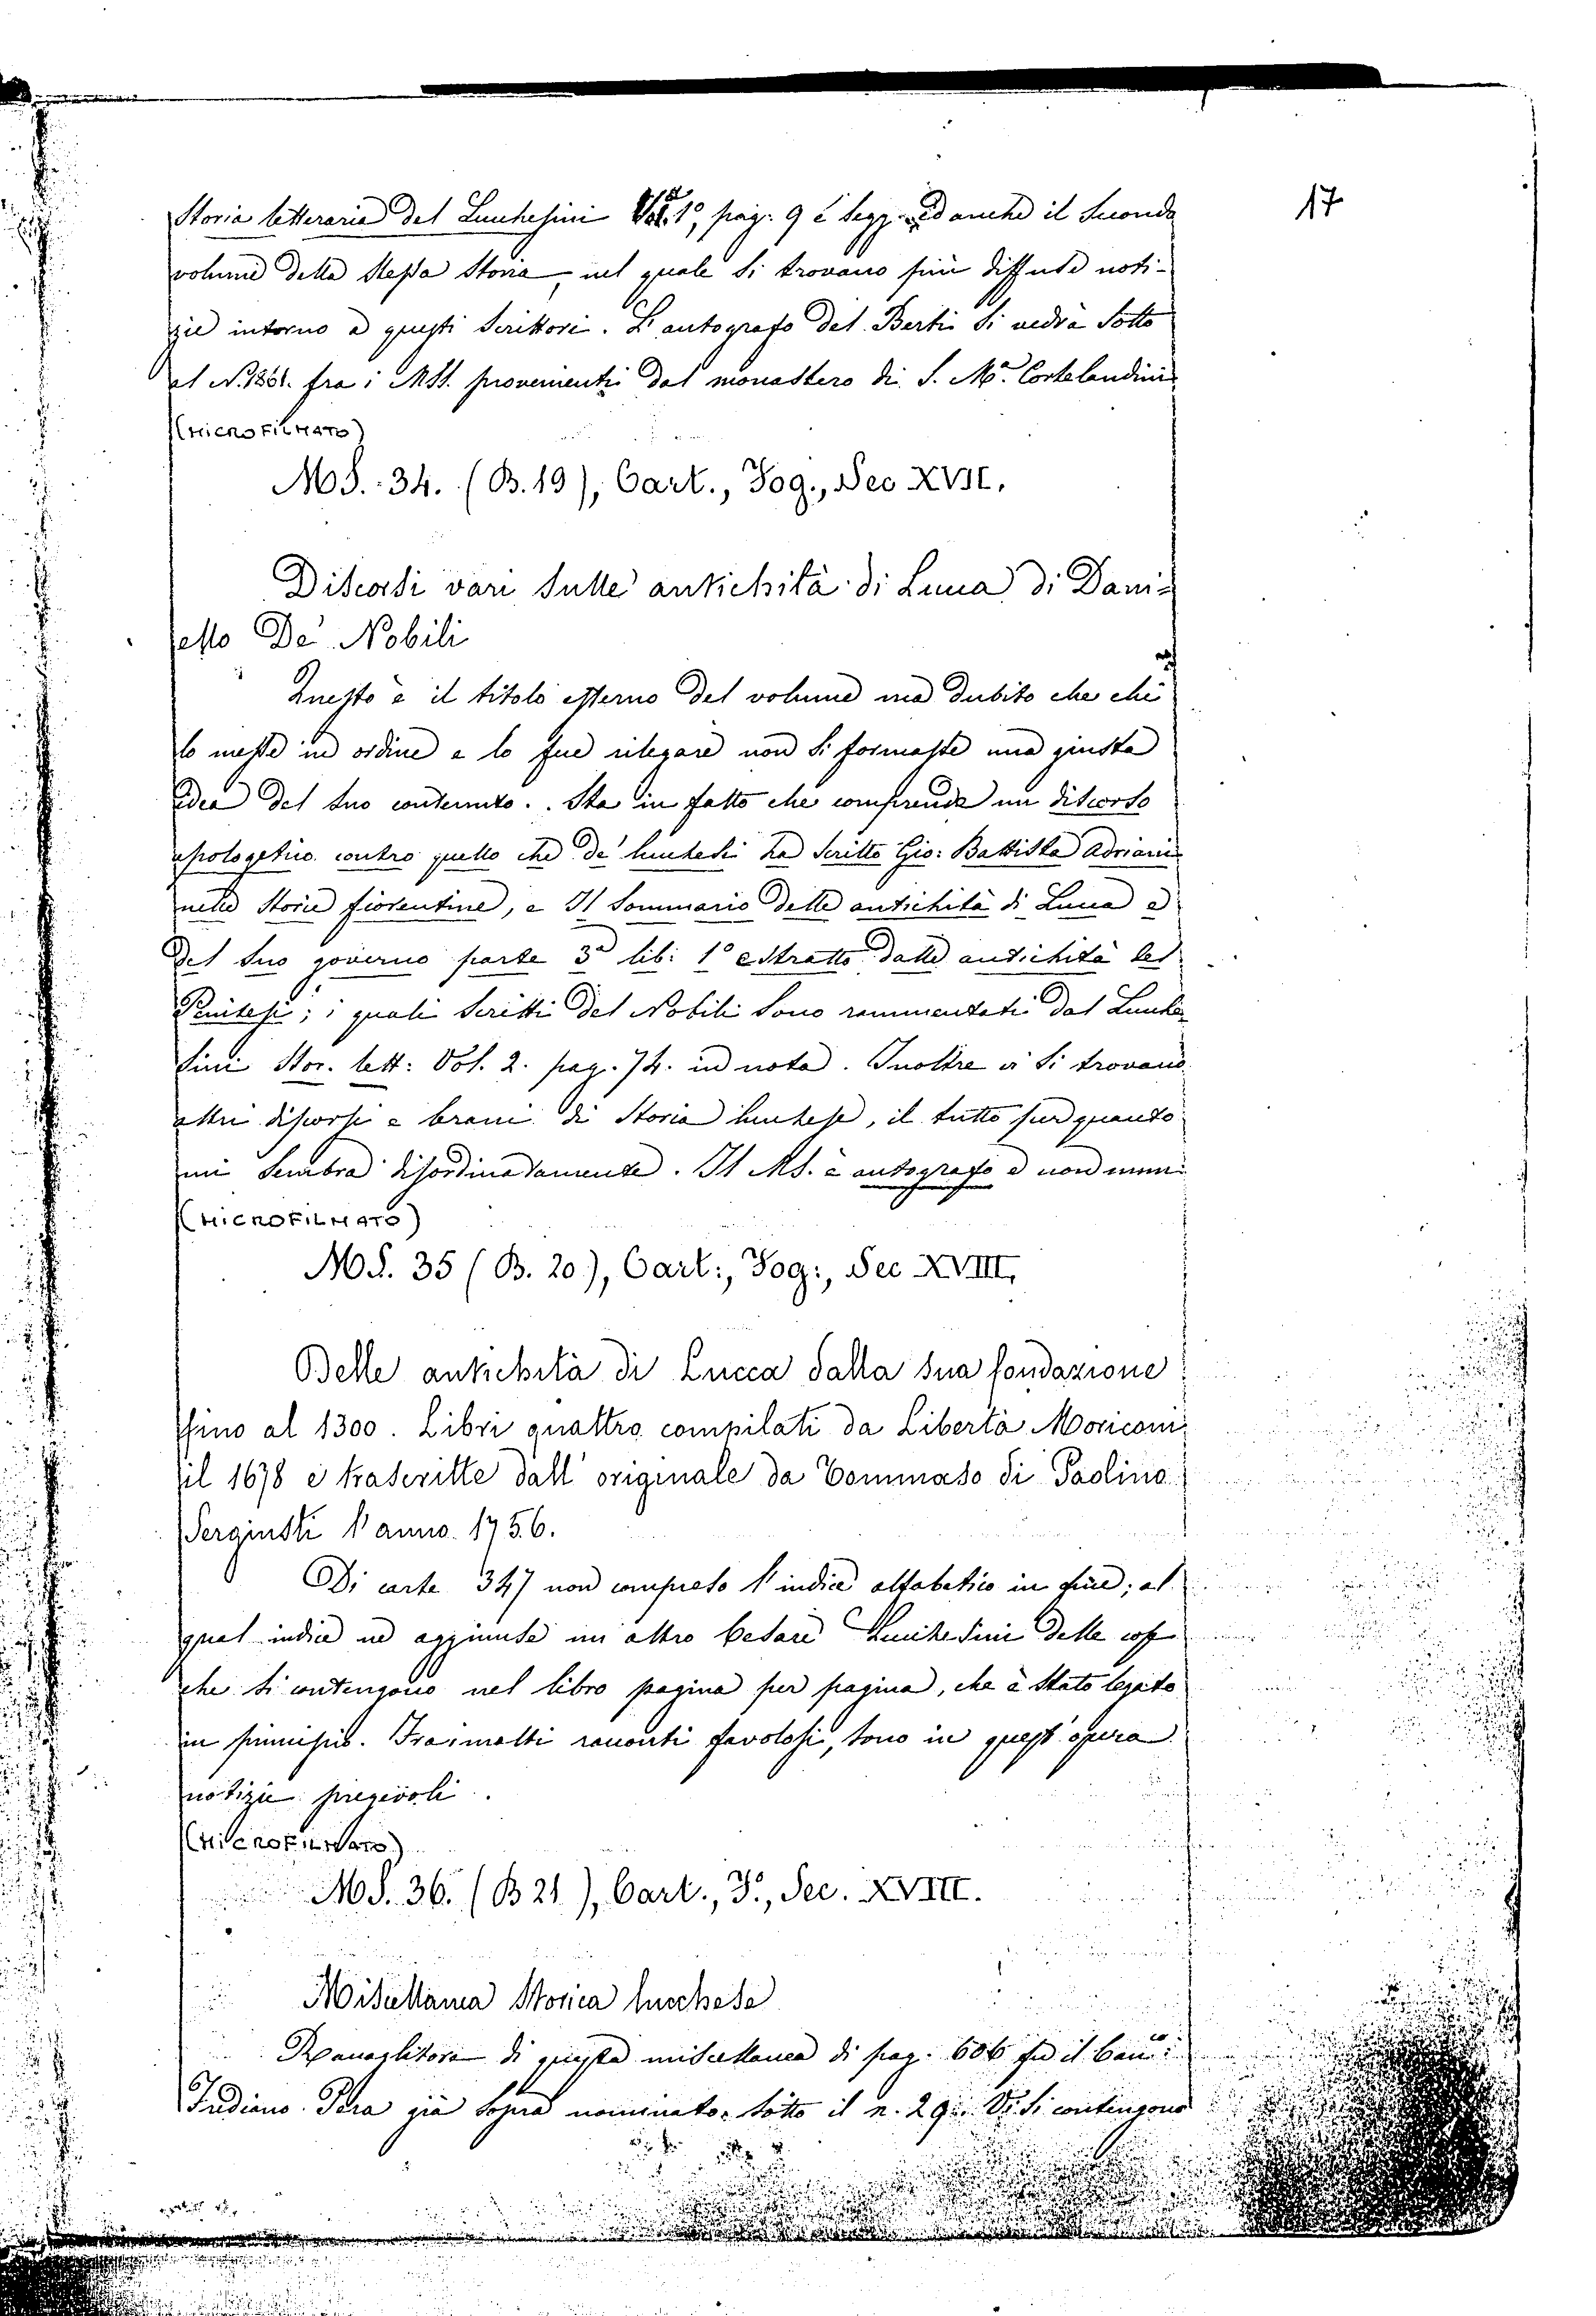 17
Storia letteraria del Lucchesini Vol. 1º, pag. 9 e segg. ed anche il Secondo
volume della stessa Storia, nel quale si trovano più diffuse noti-
zie intorno a questi Scrittori. L'autografo del Berti si vedrà sotto
al N. fra i MSS. provenienti dal monastero di S. Mª. Cortelandini
(MICROFILMATO)
MS. 34. (B. 19), Cart., Fog., Sec XVII.
Discorsi vari sulle antichità di Lucca di Dani-
ello De' Nobili
Questo è il titolo esterno del volume ma dubito che chi
lo messe in ordine e lo fece rilegare non si formasse una giusta
idea del suo contenuto. Sta in fatto che comprende un discorso
apologetico contro quello che de' lucchesi ha scritto Gio: Battista Adriani
nelle Storie fiorentine, e Il Sommario delle antichità di Lucca e
del suo governo parte 3ª lib: 1º estratto dalle antichità del
; i quali scritti del Nobili sono rammentati dal Lucche-
sini Stor. lett: Vol. 2. pag. 74. in nota. Inoltre vi si trovano
altri discorsi e brani di Storia lucchese, il tutto per quanto
mi sembra disordinatamente. Il MS. è autografo e non num:
(MICROFILMATO)
MS. 35 (B. 20), Cart:, Fog:, Sec XVIII.
Delle antichità di Lucca dalla sua fondazione
fino al 1300. Libri quattro compilati da Libertà Moriconi
il 1678 e trascritte dall' originale da Tommaso di Paolino
Sergiusti l'anno 1756.
Di carte 347 non compreso l'indice alfabetico in fine; al
qual indice ne aggiunse un altro Cesare Lucchesini delle cose
che si contengono nel libro pagina per pagina, che è stato legato
in principio. Fra i molti racconti favolosi, sono in quest' opera
notizie pregevoli.
(MICROFILMATO)
MS. 36. (B 21), Cart., F., Sec. XVIII.
Miscellanea Storica lucchese
Raccoglitore di questa miscellanea di pag. 606 fu il
Frediano Pera già sopra nominato sotto il n. 29. Vi si contengono